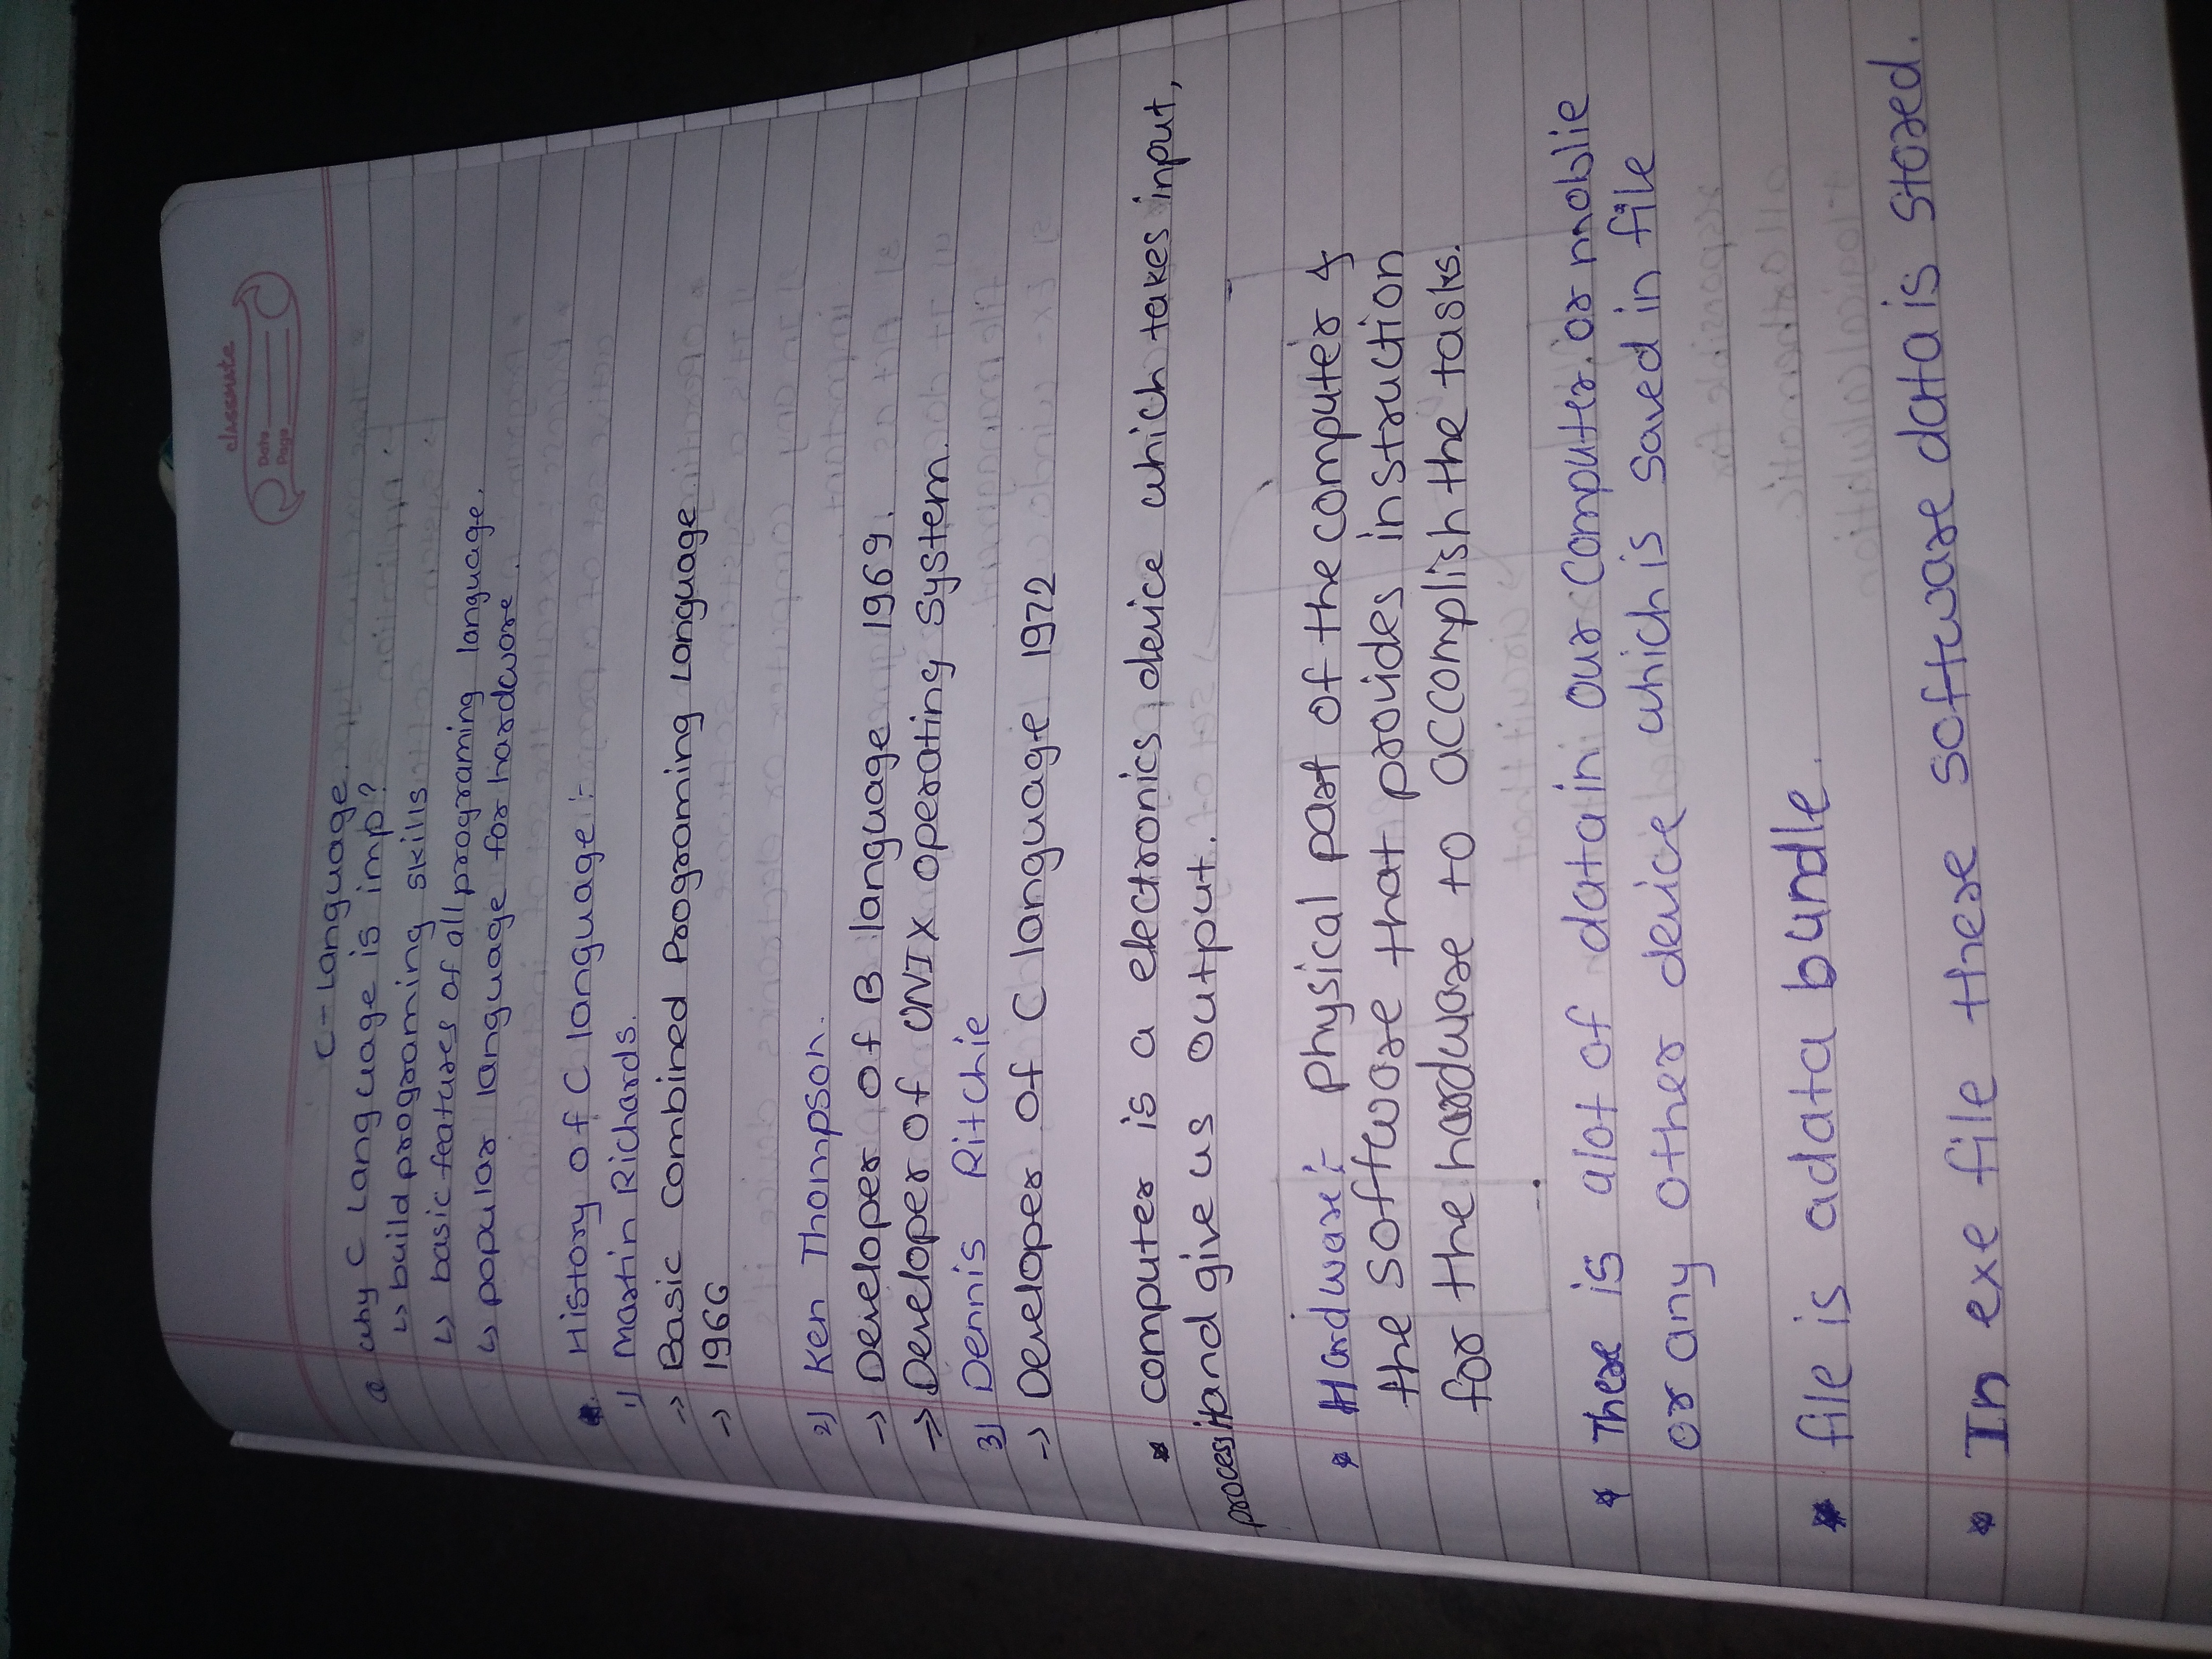 classmate
Date
Page
C-Language.
Q Why C Language is imp?
↳ build programing skills
↳ basic features of all programing language.
↳ popular language for hardware.
History of C language :-
1) Martin Richards.
→ Basic Combined Programing Language
→ 1966
2) Ken Thompson.
→ Developer of B language 1969.
→ Developer of UNIX operating System.
3) Dennis Ritchie
→ Developer of C language 1972
* computer is a electronics device which takes input,
process it and give us output.
* Hardware :- Physical part of the computer &
the software that provides instruction
for the hardware to accomplish the tasks.
* There is alot of data in our computer or moblie
or any other device which is saved in file
* file is a data bundle.
* In exe file these software data is stored.